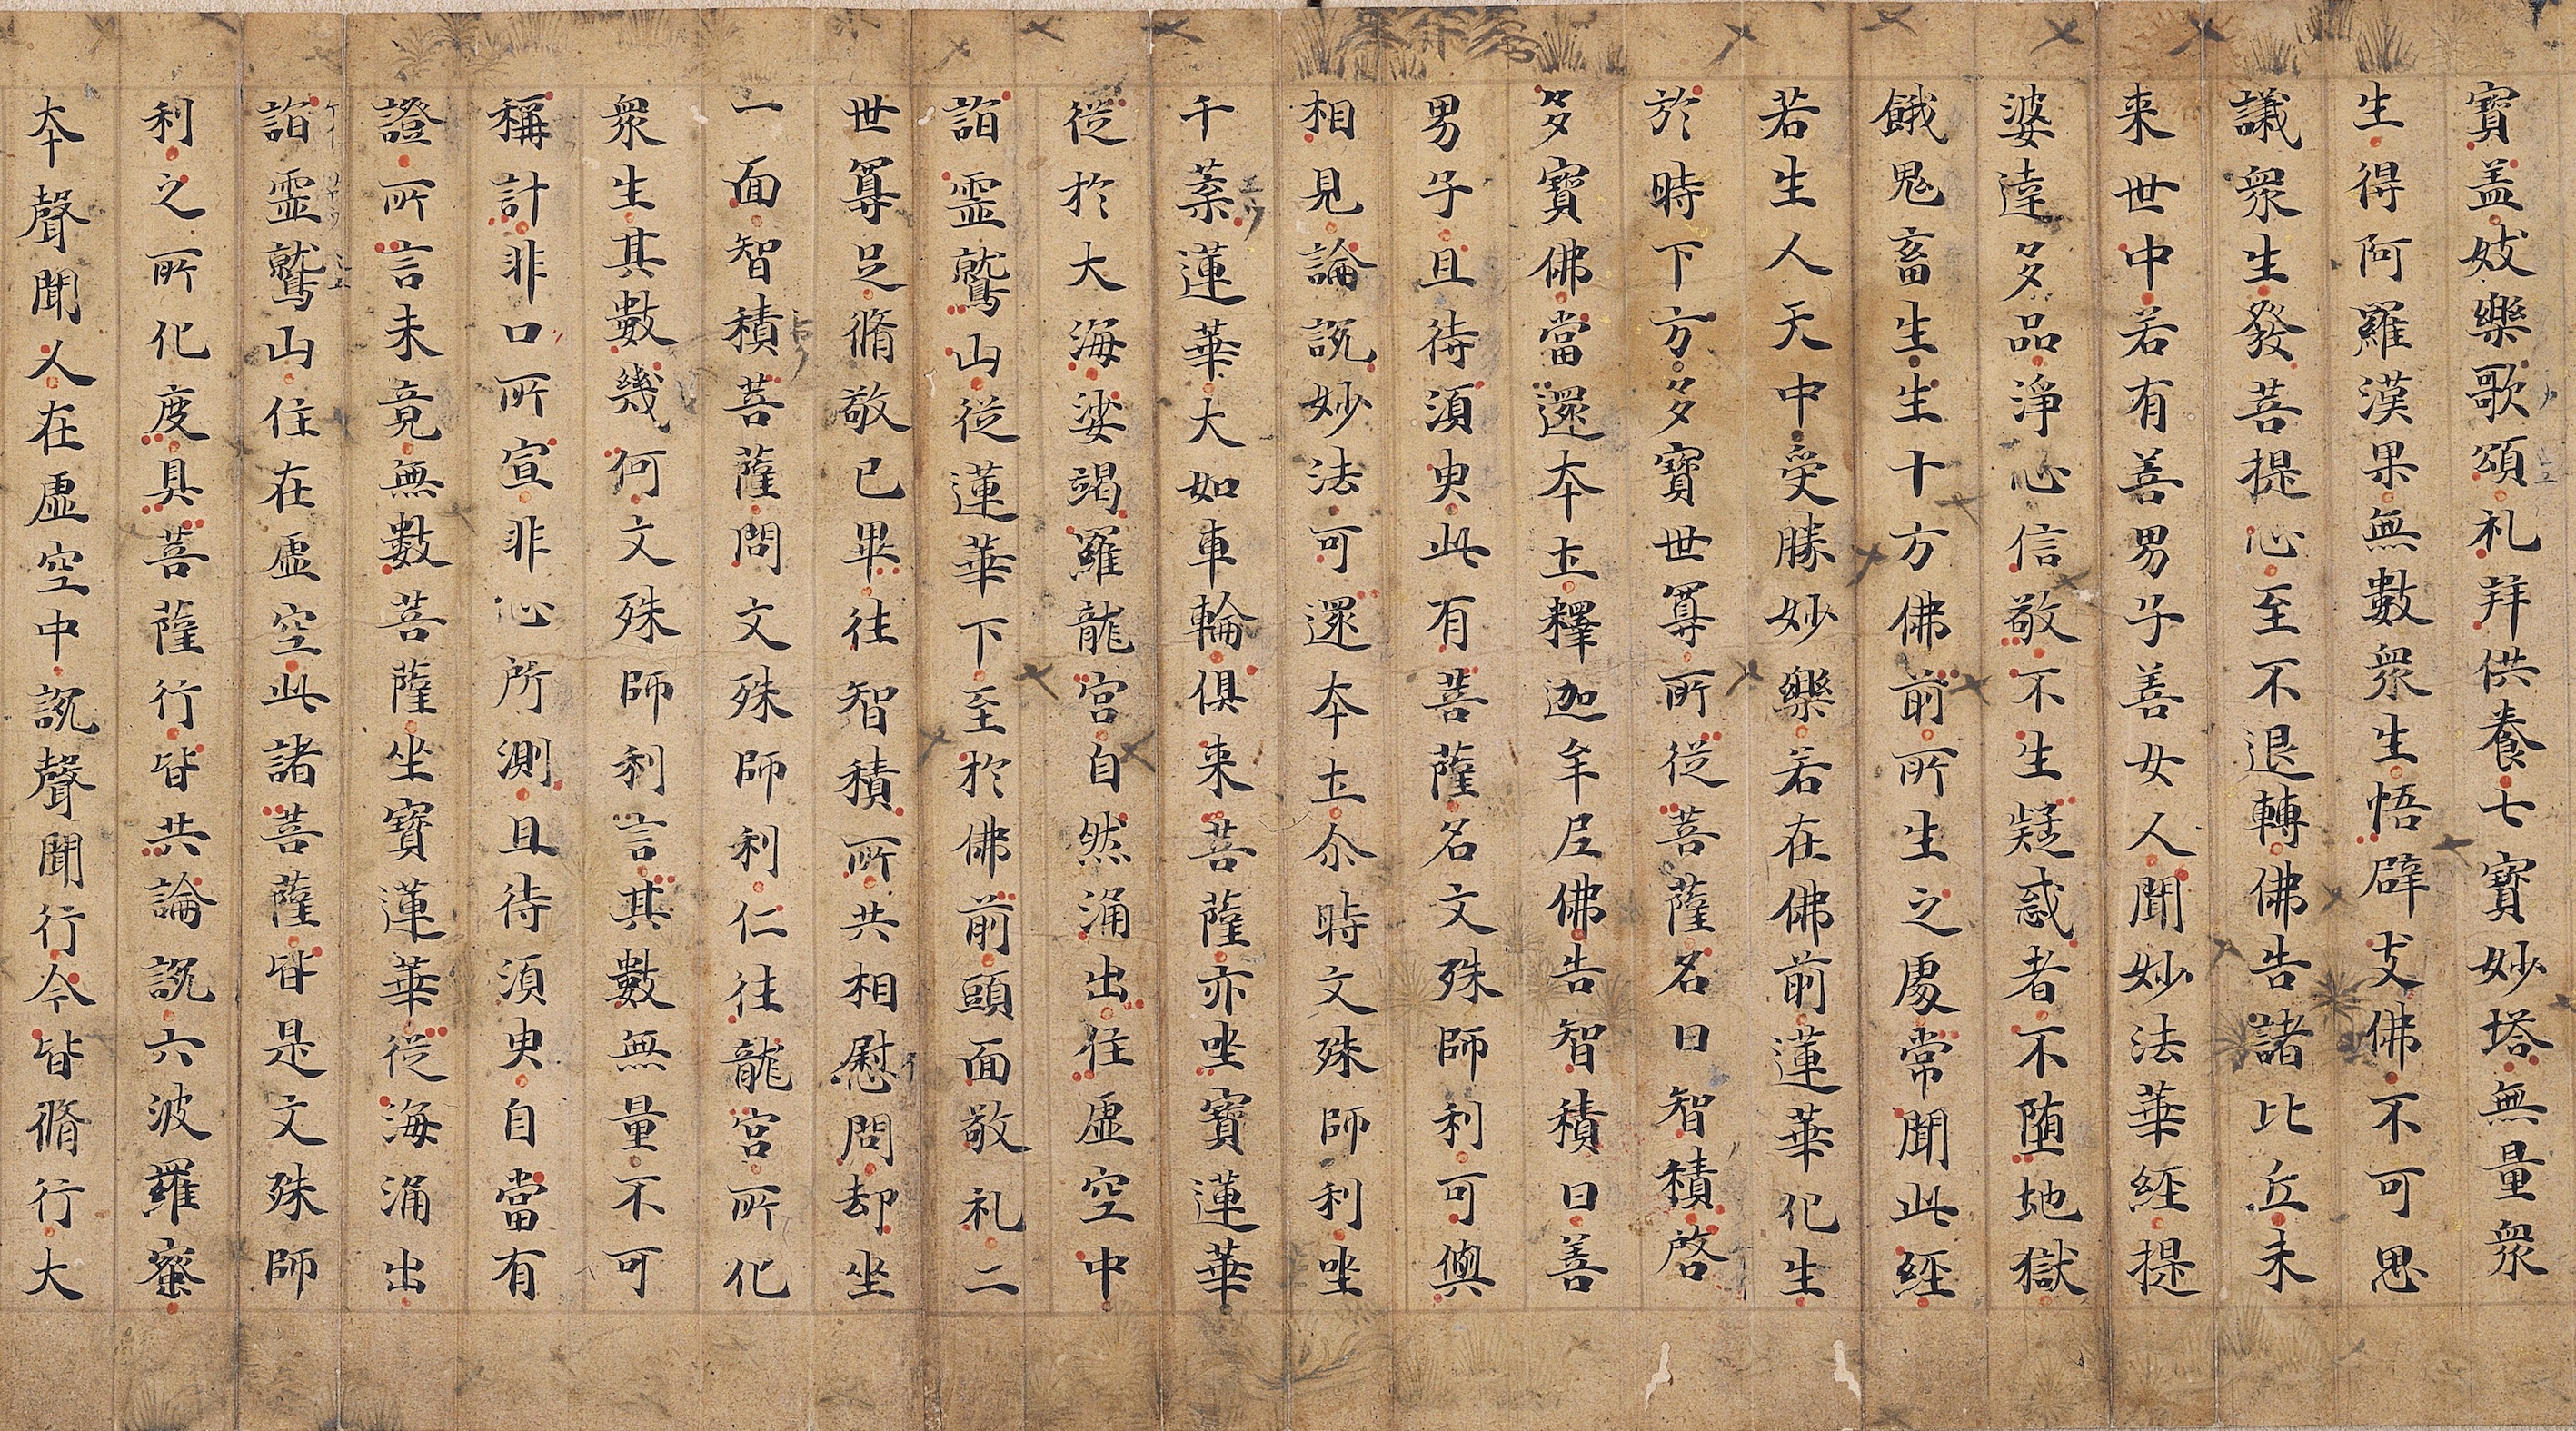 寶盖妓樂歌頌礼拜供養七寶妙塔無量衆
生得阿羅漢果無數衆生悟辟支佛不可思
議衆生發菩提心至不退轉佛告諸比丘未
来世中若有善男子善女人聞妙法華經提
婆達多品淨心信敬不生疑惑者不墮地獄
餓鬼畜生生十方佛前所生之處常聞此經
若生人天中受勝妙樂若在佛前蓮華化生
於時下方多寶世尊所從菩薩名曰智積啓
多寶佛當還本土釋迦牟尼佛告智積曰善
男子且待須臾此有菩薩名文殊師利可與
相見論說妙法可還本土尒時文殊師利坐
千葉蓮華大如車輪俱来菩薩亦坐寶蓮華
從於大海娑竭羅龍宮自然涌出住虛空中
詣靈鷲山從蓮華下至於佛前頭面敬礼二
世尊足脩敬已畢往智積所共相慰問却坐
一面智積菩薩問文殊師利仁往龍宮所化
衆生其數幾何文殊師利言其數無量不可
稱計非口所宣非心所測且待須臾自當有
證所言未竟無數菩薩坐寶蓮華從海涌出
詣靈鷲山住在虛空此諸菩薩皆是文殊師
利之所化度具菩薩行皆共論說六波羅蜜
本聲聞人在虛空中說聲聞行今皆脩行大